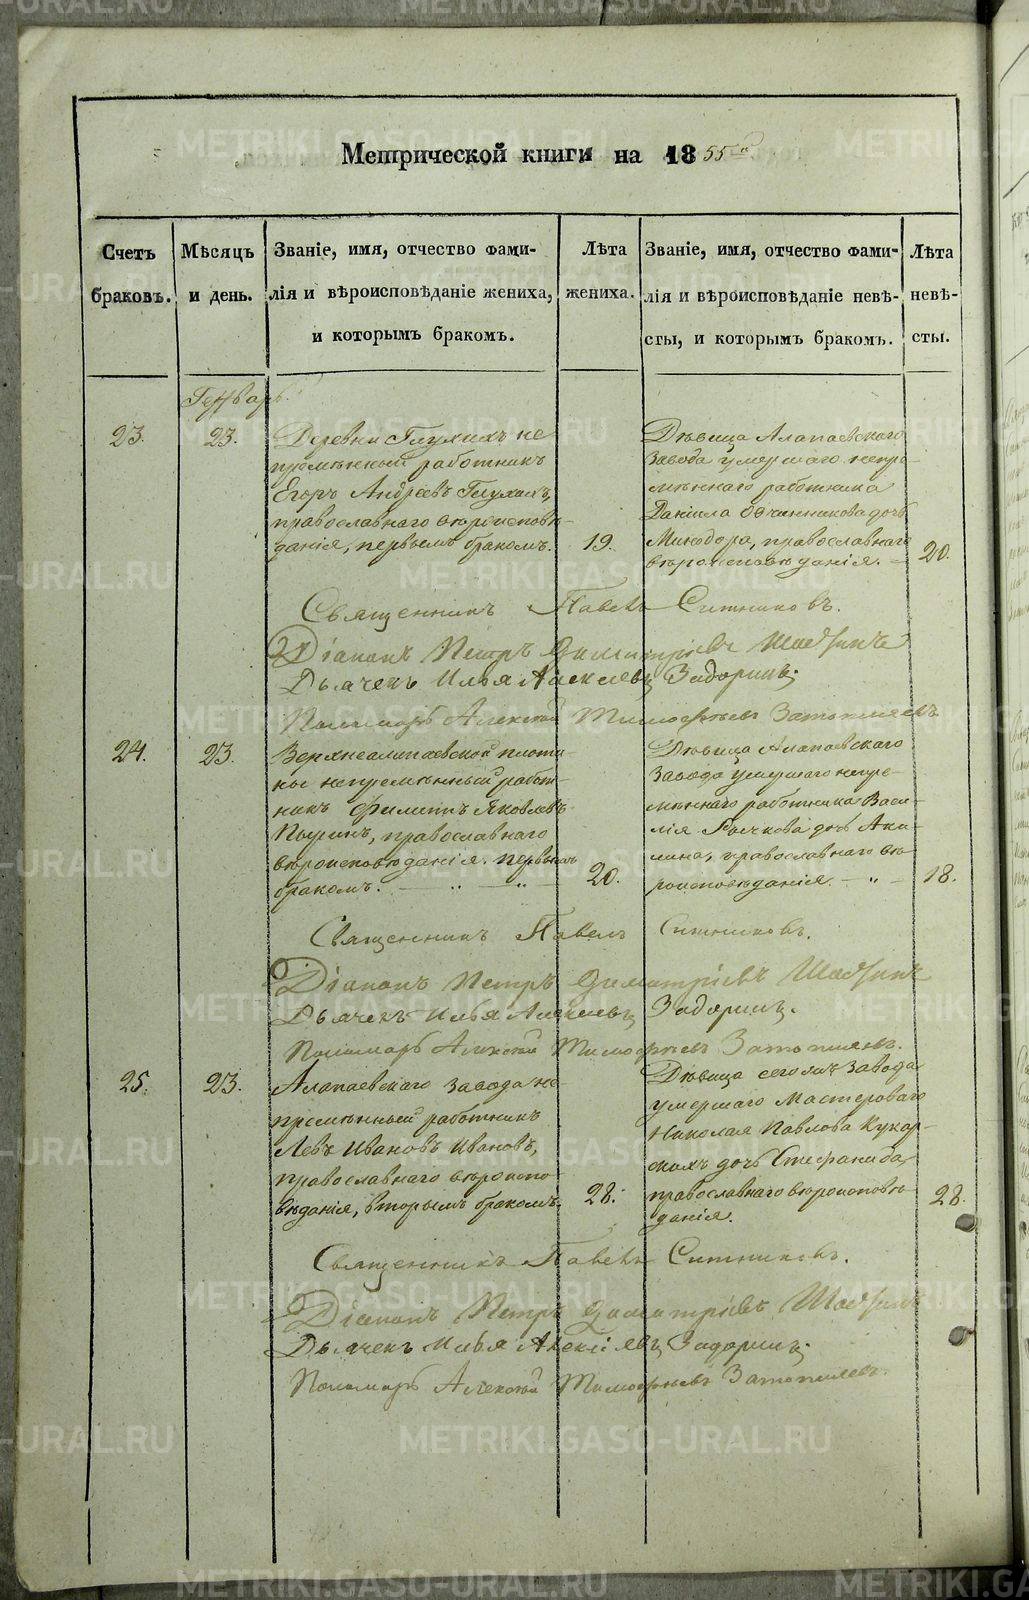 Метрической книги на 1855го
Счетъ браковъ.
Мѣсяцъ и день.
Званіе, имя, отчество фами-
лія и вѣроисповѣданіе жениха,
и которымъ бракомъ.
Лѣта
жениха.
Званіе, имя, отчество фами-
лія и вѣроисповѣданіе невѣ-
сты, и которымъ бракомъ.
Лѣта
невѣ-
сты.
Генварь.
23.
23.
Деревни Глухихъ не
премѣнный работникъ
Егоръ Андреевъ Глухихъ,
православнаго вѣроисповѣ-
данія, первымъ бракомъ.
19.
Дѣвица Алапаевскаго
Завода умершаго непре-
мѣннаго работника
Даніила Овчинникова дочь
Минодора, православнаго
вѣроисповѣданія.
20.
Священникъ Павелъ Ситниковъ.
Діаконъ Петръ Димитріевъ
Дьячекъ Илья Алексѣевъ Задоринъ.
Пономарь Алексѣй Тимофѣевъ Затопляевъ
24.
23.
Верхнеалапаевской плоти-
ны непремѣнный работ-
никъ Филиппъ Яковлевъ
православнаго
вѣроисповѣданія. первымъ
бракомъ.
20.
Дѣвица Алапаевскаго
Завода умершаго непре-
мѣннаго работника Васи-
лія Рычкова дочь Аки-
лина, православнаго вѣ-
роисповѣданія.
18.
Священникъ Павелъ Ситниковъ.
Діаконъ Петръ Димитріевъ
Дьячекъ Илья Алексѣевъ Задоринъ.
Пономарь Алексѣй Тимофѣевъ Затопляевъ.
25.
23.
Алапаевскаго завода не-
премѣнный работникъ
Левъ Ивановъ Ивановъ,
православнаго вѣроиспо-
вѣданія, вторымъ бракомъ.
28.
Дѣвица сего же завода
умершаго Мастероваго
Николая Павлова Кукар-
скихъ дочь Стефанида,
православнаго вѣроисповѣ-
данія.
28.
Священникъ Павелъ Ситниковъ.
Діаконъ Петръ Димитріевъ
Дьячекъ Илья Алексіевъ Задоринъ.
Пономарь Алексѣй Тимофѣевъ Затопляевъ.
METRIKI.GASO-URAL.RU